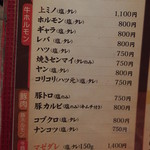 牛ホルモン
上ミノ(塩・タレ) 1,100円
ホルモン(塩・タレ) 800円
ギャラ(塩・タレ) 800円
レバ(塩・タレ) 800円
ハツ(塩・タレ) 750円
焼きセンマイ(塩・タレ) 750円
ヤン(塩・タレ) 800円
コリコリ(ハツ元)(塩・タレ) 750円
豚トロ(塩) 750円
豚カルビ 800円
コブクロ(塩・タレ) 800円
ナンコツ(塩) 750円
150g 1,400円